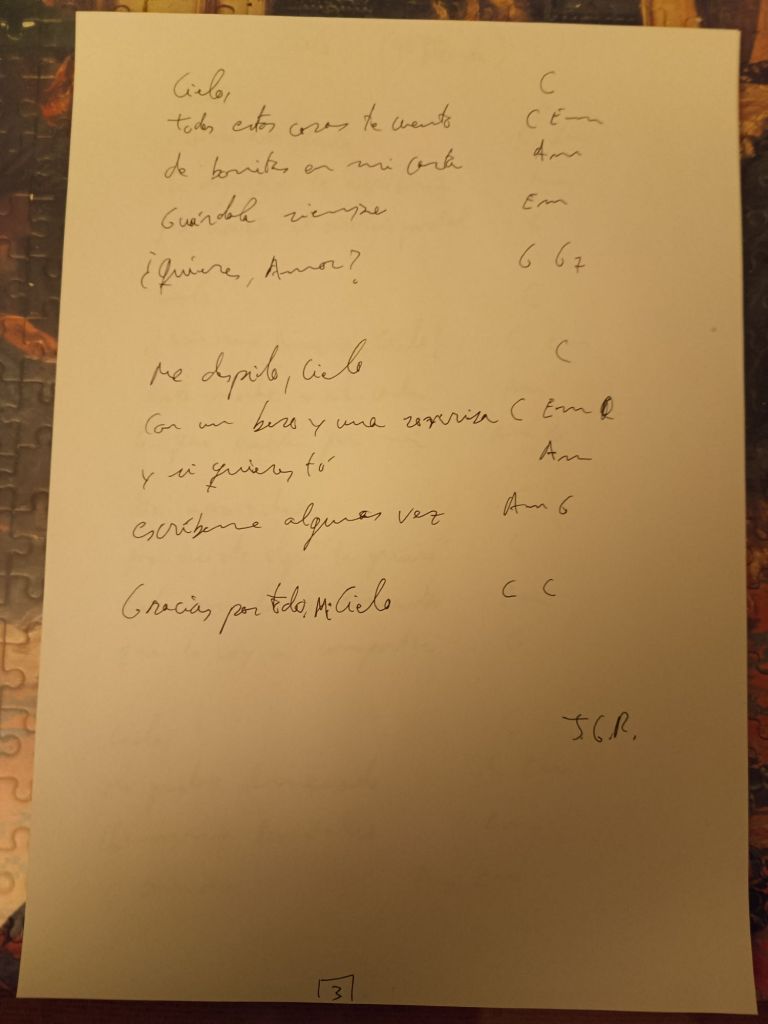 Cielo, C
todas estas cosas te cuento C Em
de bonitas en mi carta Am
Guárdala siempre Em
¿Quieres, Amor? G G7
Me despido, Cielo C
Con un beso y una sonrisa C Em
y si quieres tú Am
escríbeme alguna vez Am G
Gracias por todo, Mi Cielo C C
J.G.R.
3